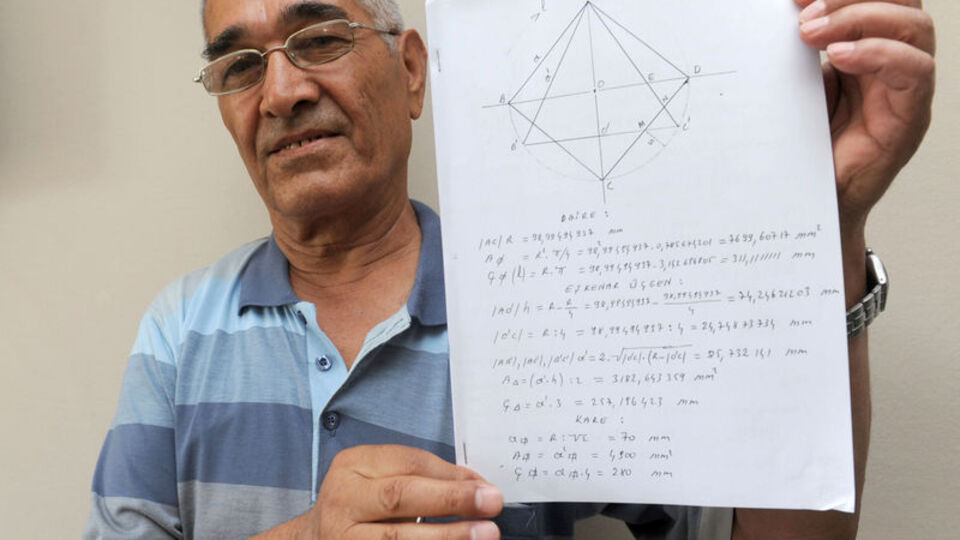 A
O
E
D
B
N
M
C'
B'
d
S
C
DAİRE :
|AC| R = 98,99494937 mm
A⌀ = R². π/4 = 98,99494937². 0,785674201 = 7699,60717 mm²
Ç⌀(l) = R. π = 98,99494937. 3,142696805 = 311,1111111 mm
EŞKENAR ÜÇGEN :
|Ad| h = R - R/4 = 98,99494937 - 98,99494937/4 = 74,24621203 mm
|dc| = R : 4 = 98,99494937 : 4 = 24,74873734 mm
a' = 2. √|dc|. (R-|dc|) = 85,732141 mm
A△ = (a'. h) : 2 = 3182,643359 mm²
Ç△ = a'. 3 = 257,196423 mm
KARE :
= R : √2 = 70 mm
= 4900 mm²
.4 = 280 mm